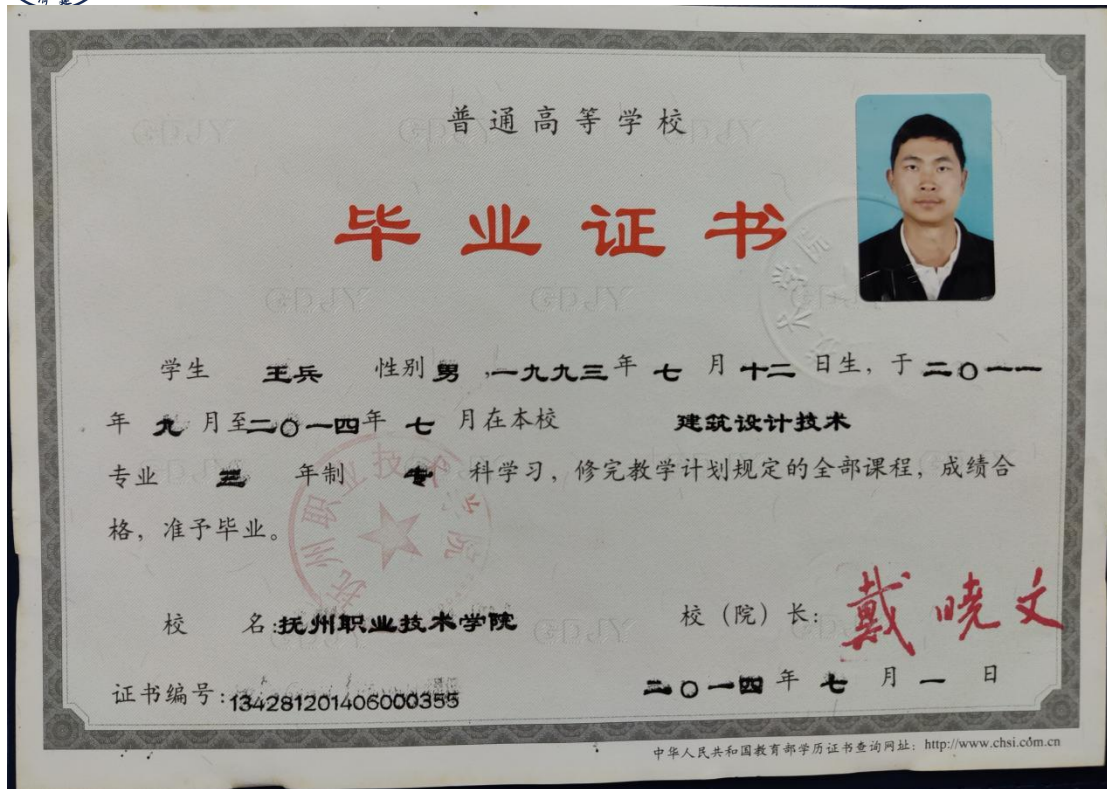 普通高等学校
毕业证书
学生 王兵 性别 男 ,一九九三年 七 月 十二 日生，于 二〇一一
年 九 月至二〇一四年 七 月在本校 建筑设计技术
专业 三 年制 专 科学习，修完教学计划规定的全部课程，成绩合
格，准予毕业。
抚州职业技术学院
校 名:抚州职业技术学院 校（院）长: 戴晓文
证书编号:134281201406000355 二〇一四 年 七 月 一 日
中华人民共和国教育部学历证书查询网址: http://www.chsi.com.cn